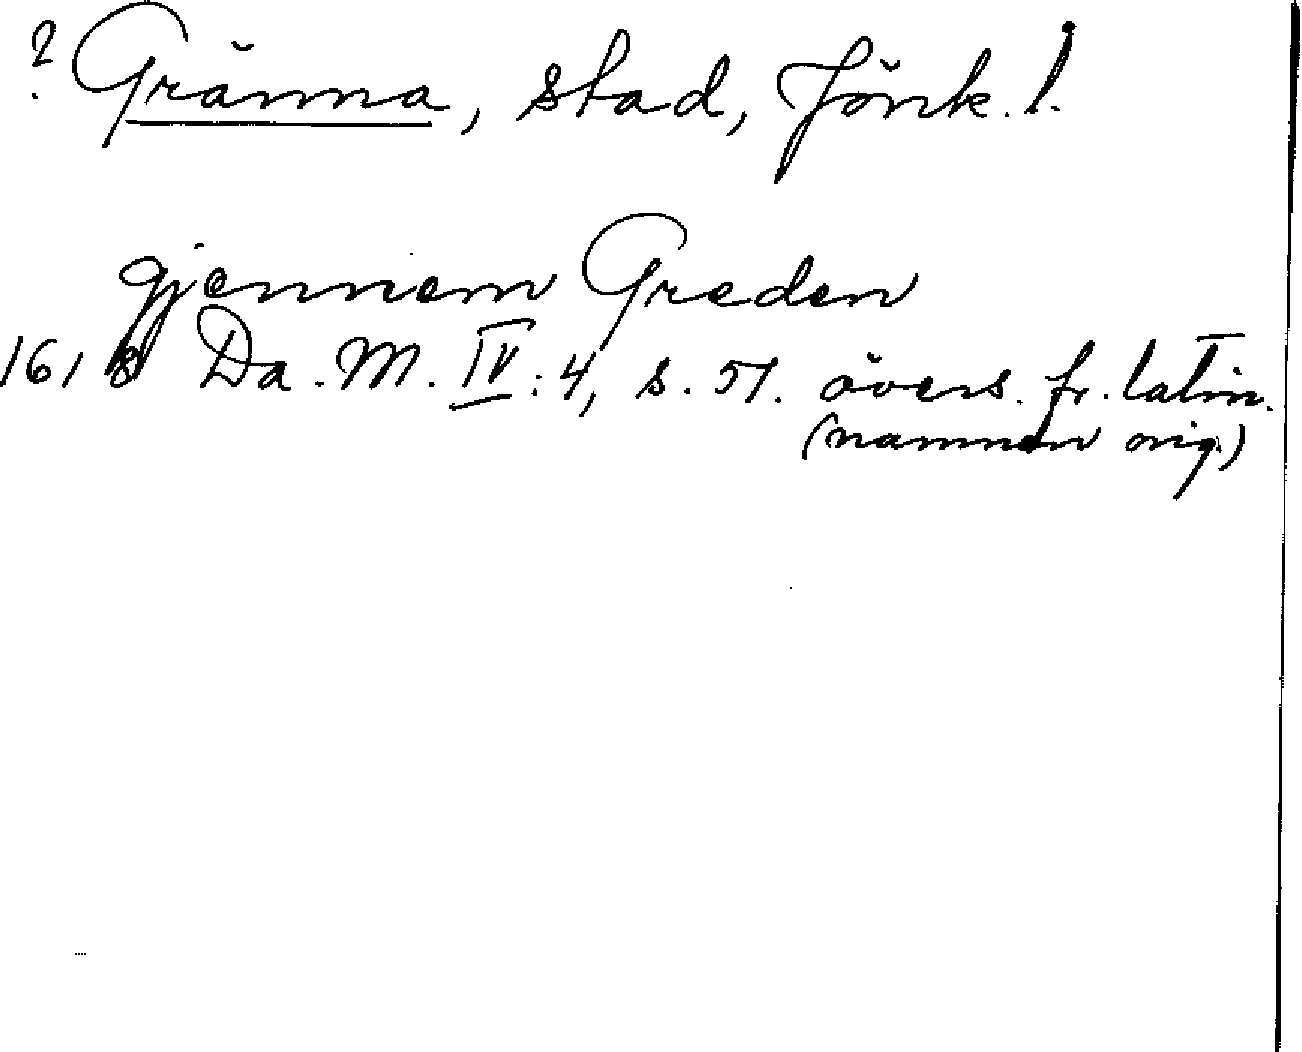 ? Gränna, stad, Jönk. l.
gjennem Greden
1618 Da. M. IV: 4, s. 51. övers. fr. latin.
(namnen orig.)